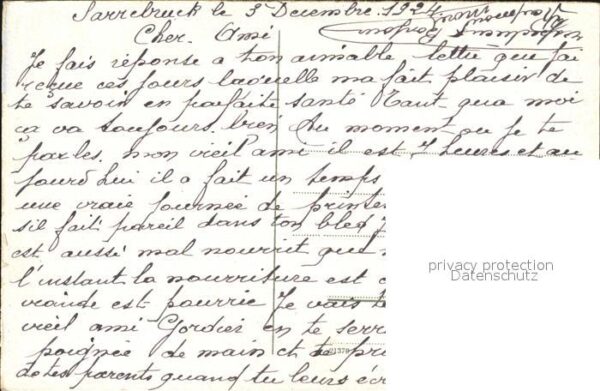 Sarrebruck le 3 Decembre. 1924
Cher. Ami
Je fais réponse a ton aimable lettre que j'ai
reçue ces jours laquelle ma fait plaisir de
te savoir en parfaite santé Tant qua moi
ça va toujours. bien Au moment ou je te
parles. mon vieil ami il est 7 heures et au
jourd hui il a fait un temps
une vraie journée de printe
s'il fait pareil dans ton bled J
est aussi mal nourrit que
l'instant la nourriture est
viande est pourrie Je vais te
vieil ami Gordier en te serr
poignée de main et te pri
de tes parents quand tu leurs écr
privacy protection
Datenschutz
21378